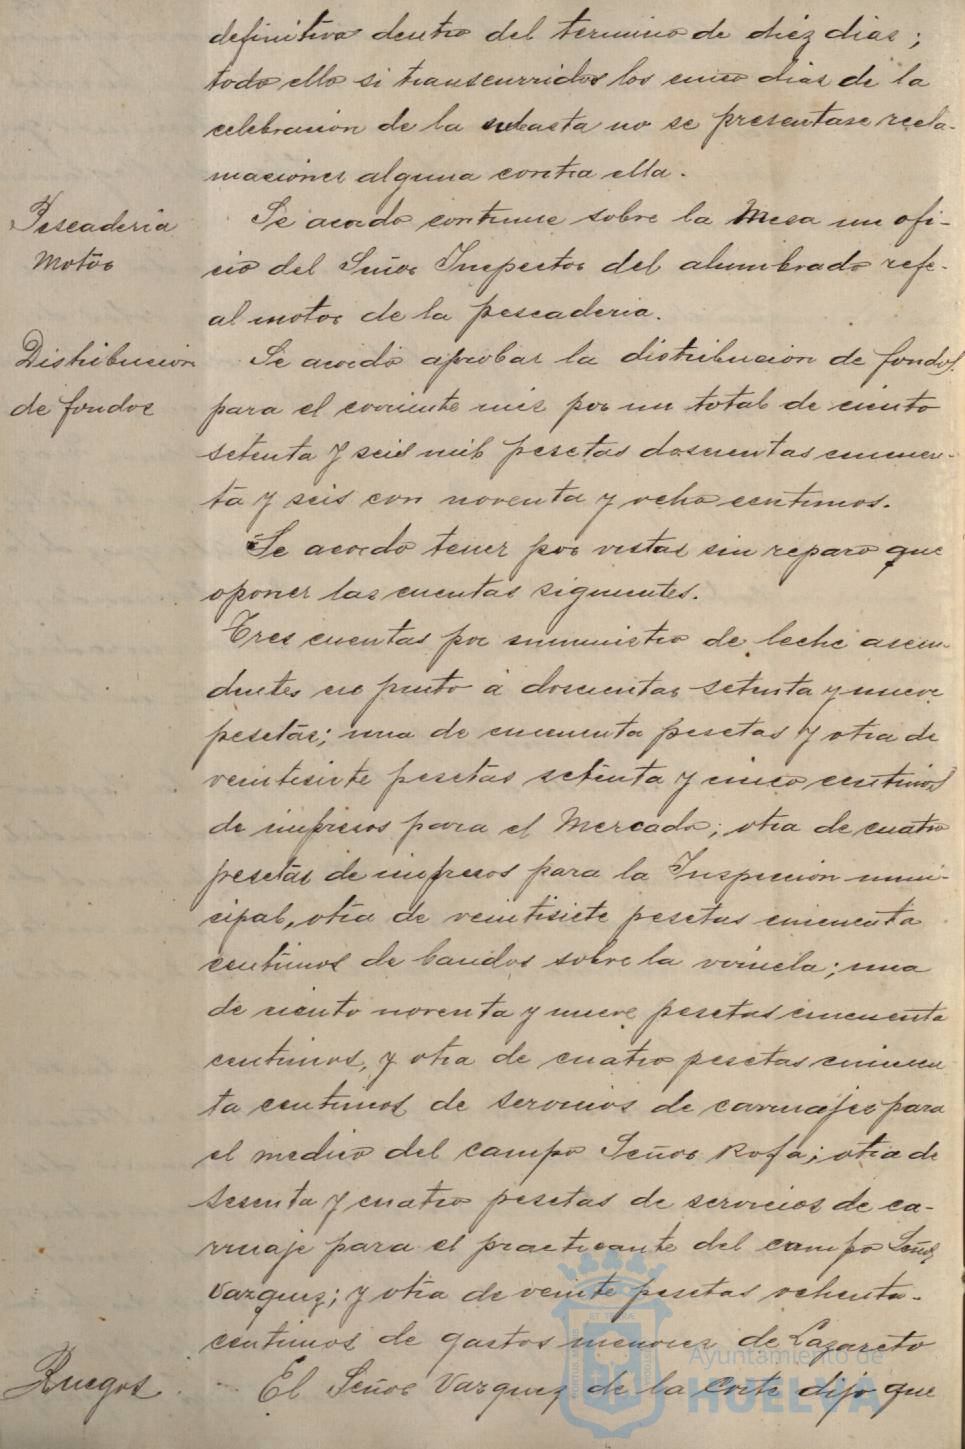 definitiva dentro del termino de diez dias;
todo ello si transcurridos los cinco dias de la
celebracion de la subasta no se presentase recla-
maciones alguna contra ella.
Pescaderia
Motor
Se acordo continue sobre la Mesa un ofi-
cio del Señor Inspector del alumbrado refe-
al motor de la pescaderia.
Distribucion
de fondos
Se acordó aprobar la distribucion de fondos
para el corriente mes por un total de ciento
setenta y seis mil pesetas doscientas cincuen-
ta y seis con noventa y ocho centimos.
Se acordo tener por vistas sin reparo que
oponer las cuentas siguientes.
Tres cuentas por suministro de leche ascen-
dentes en junto á doscientas setenta y nueve
pesetas; una de cincuenta pesetas y otra de
veintisiete pesetas setenta y cinco centimos
de impresos para el Mercado; otra de cuatro
pesetas de impresos para la Inspeccion muni-
cipal, otra de veintisiete pesetas cincuenta
centimos de bandos sobre la viruela; una
de ciento noventa y nueve pesetas cincuenta
centimos, y otra de cuatro pesetas cincuen-
ta centimos de servicios de carruajes para
el medico del campo Señor Rofa; otra de
sesenta y cuatro pesetas de servicios de ca-
rruaje para el practicante del campo Señor
Vazquez; y otra de veinte pesetas ochenta
centimos de gastos menores de Lazareto
Ruegos
El Señor Vazquez de la Corte dijo que
Ayuntamiento de
HUELVA